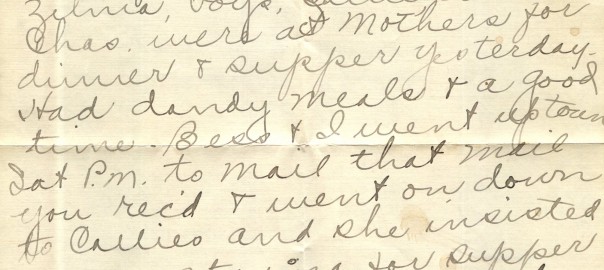 Zelma, boys,
Chas. were at Mothers for
dinner & supper yesterday.
Had dandy meals & a good
time. Bess & I went uptown
Sat P.M. to mail that mail
you rec'd & went on down
to Callies and she insisted
for supper